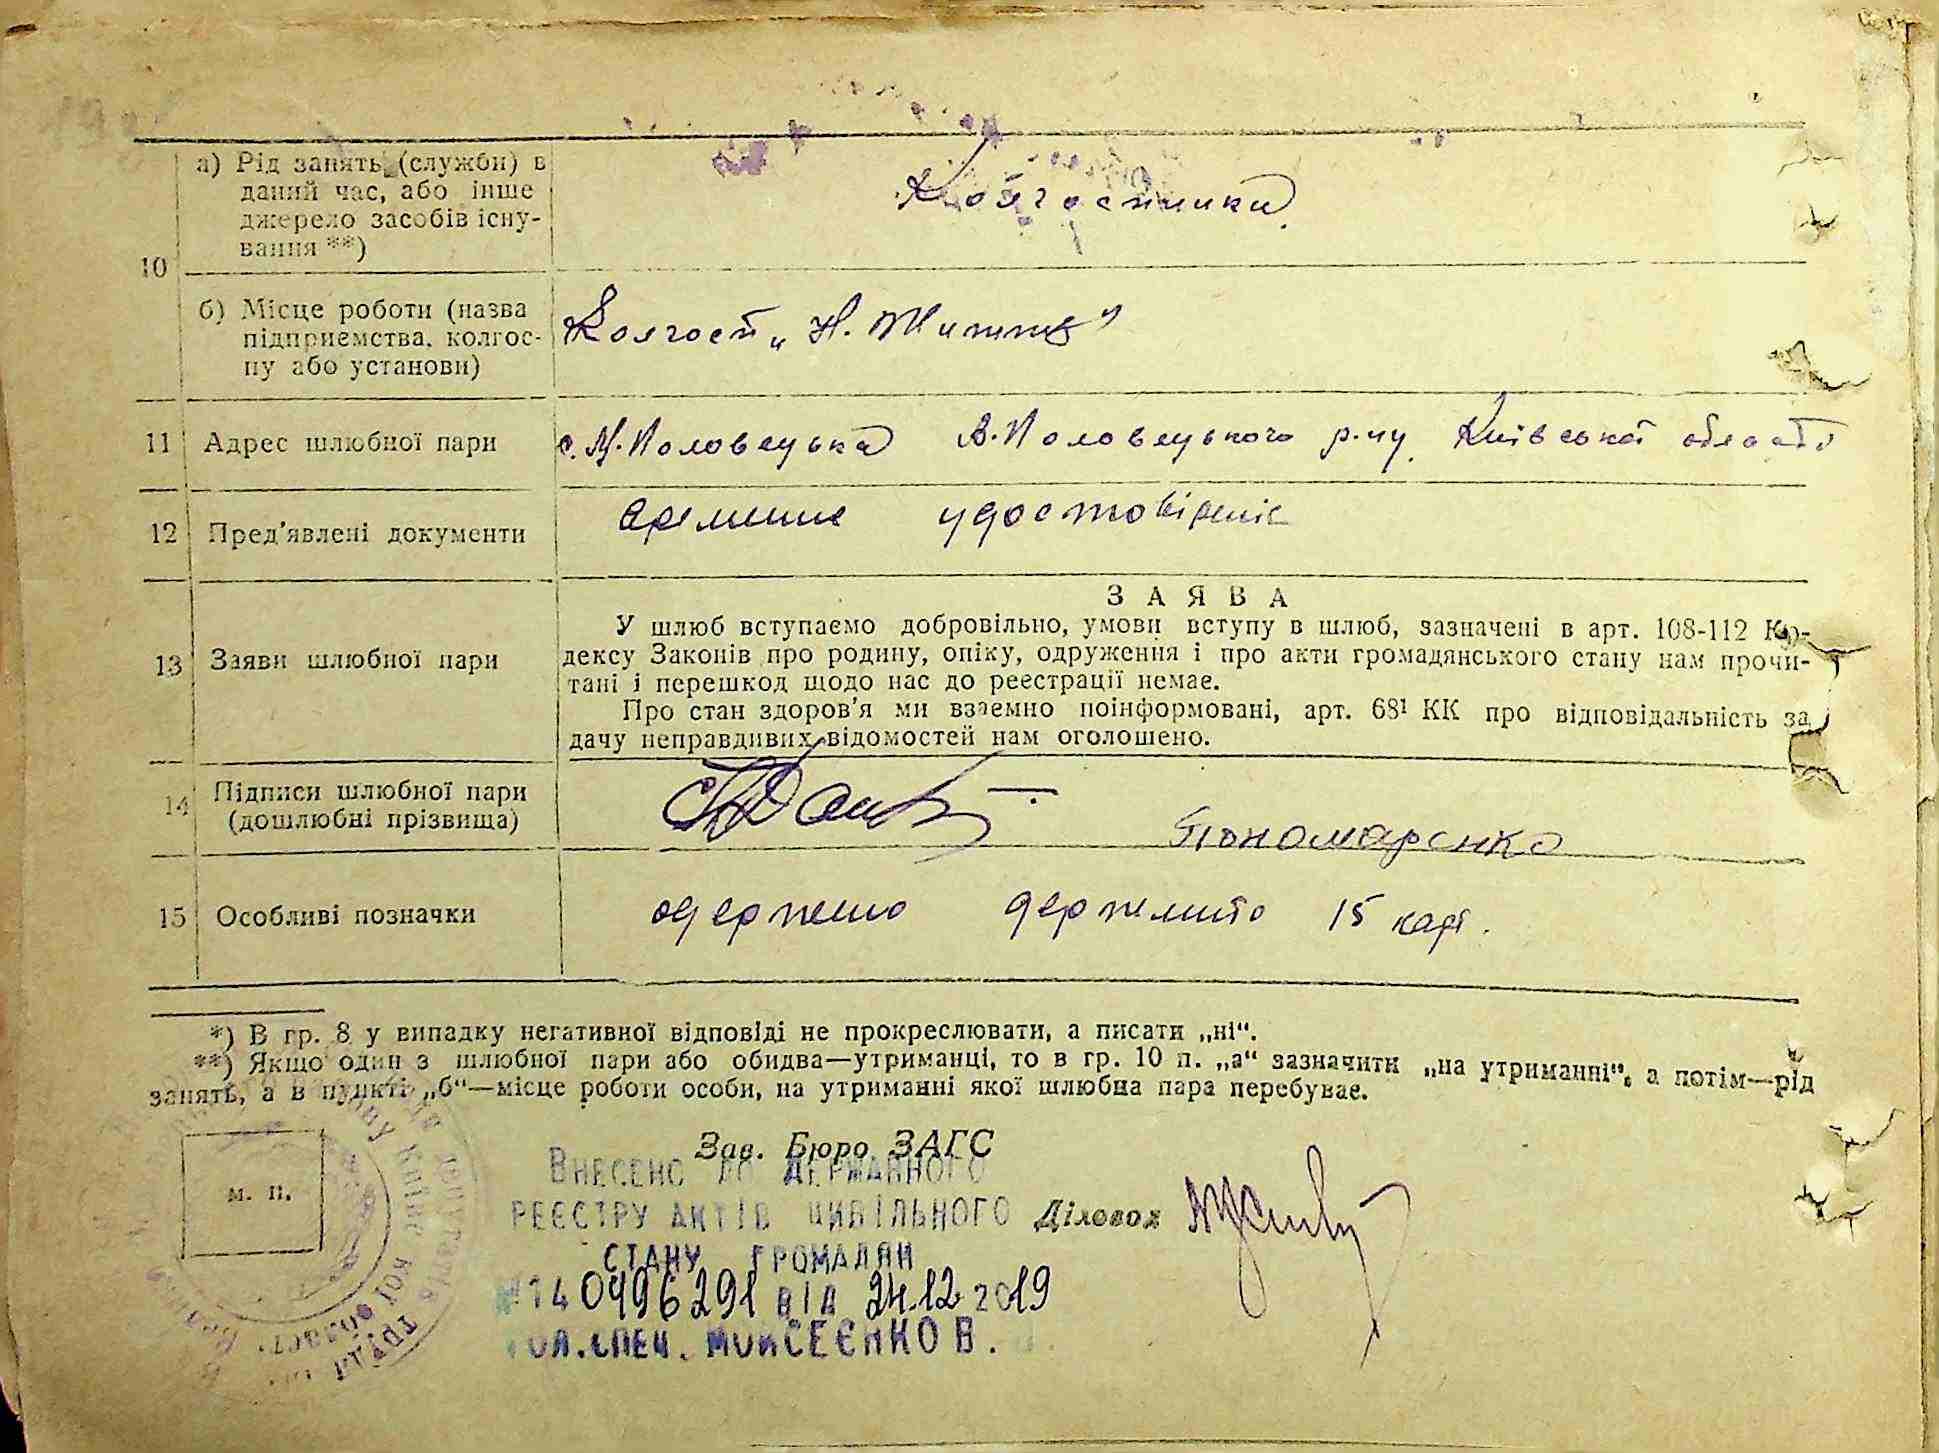 а) Рід занять (служби) в
даний час, або інше
джерело засобів існу-
вання **)
Колгоспники
10
б) Місце роботи (назва
підприємства, колгос-
пу або установи)
Колгосп „Н. Життя"
11 Адрес шлюбної пари
с. М. Половецька В. Половецького р-ну Київської області
12 Пред'явлені документи
времине удостовірениє
13 Заяви шлюбної пари
ЗАЯВА
У шлюб вступаємо добровільно, умови вступу в шлюб, зазначені в арт. 108-112 Ко-
дексу Законів про родину, опіку, одруження і про акти громадянського стану нам прочи-
тані і перешкод щодо нас до реєстрації немає.
Про стан здоров'я ми взаємно поінформовані, арт. 68¹ КК про відповідальність за
дачу неправдивих відомостей нам оголошено.
14 Підписи шлюбної пари
(дошлюбні прізвища)
Пономаренко
15 Особливі позначки
одержено держмито 15 карб.
*) В гр. 8 у випадку негативної відповіді не прокреслювати, а писати „ні“.
**) Якщо один з шлюбної пари або обидва—утриманці, то в гр. 10 п. „а“ зазначити „на утриманні“, а потім—рід
занять, а в пункті „б“—місце роботи особи, на утриманні якої шлюбна пара перебуває.
м. п.
Зав. Бюро ЗАГС
ВНЕСЕНО ДО ДЕРЖАВНОГО
РЕЄСТРУ АКТІВ ЦИВІЛЬНОГО
Діловод
СТАНУ ГРОМАДЯН
№ 140496291 ВІД 24.12 2019
ГОЛ.СПЕЦ. МОИСЕЄНКО В.